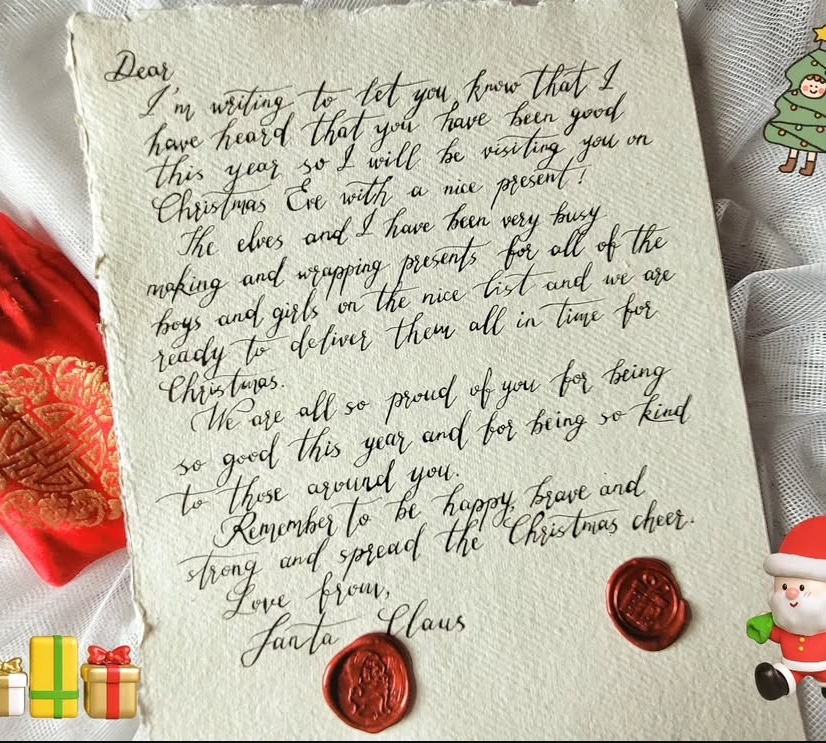 Dear
I'm writing to let you know that I
have heard that you have been good
this year so I will be visiting you on
Christmas Eve with a nice present!
The elves and I have been very busy
making and wrapping presents for all of the
boys and girls on the nice list and we are
ready to deliver them all in time for
Christmas.
We are all so proud of you for being
so good this year and for being so kind
to those around you.
Remember to be happy, brave and
strong and spread the Christmas cheer.
Love from,
Santa Claus